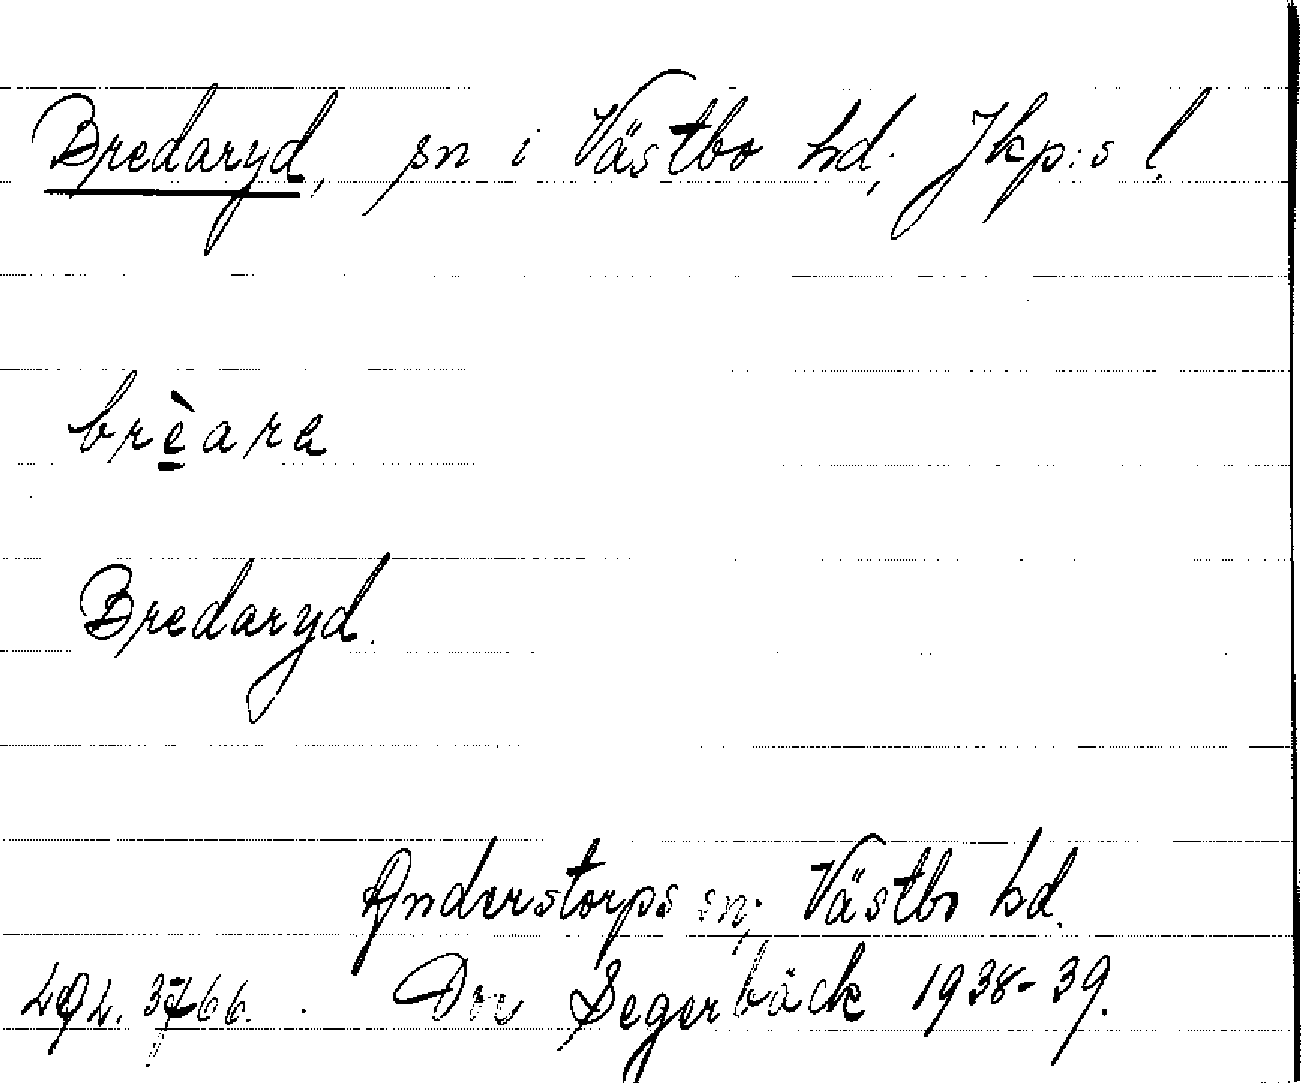 Bredaryd, sn i Västbo hd, Jkp:s l.
brèara
Bredaryd.
Anderstorps sn, Västbo hd.
3766. Segerbäck 1938-39.